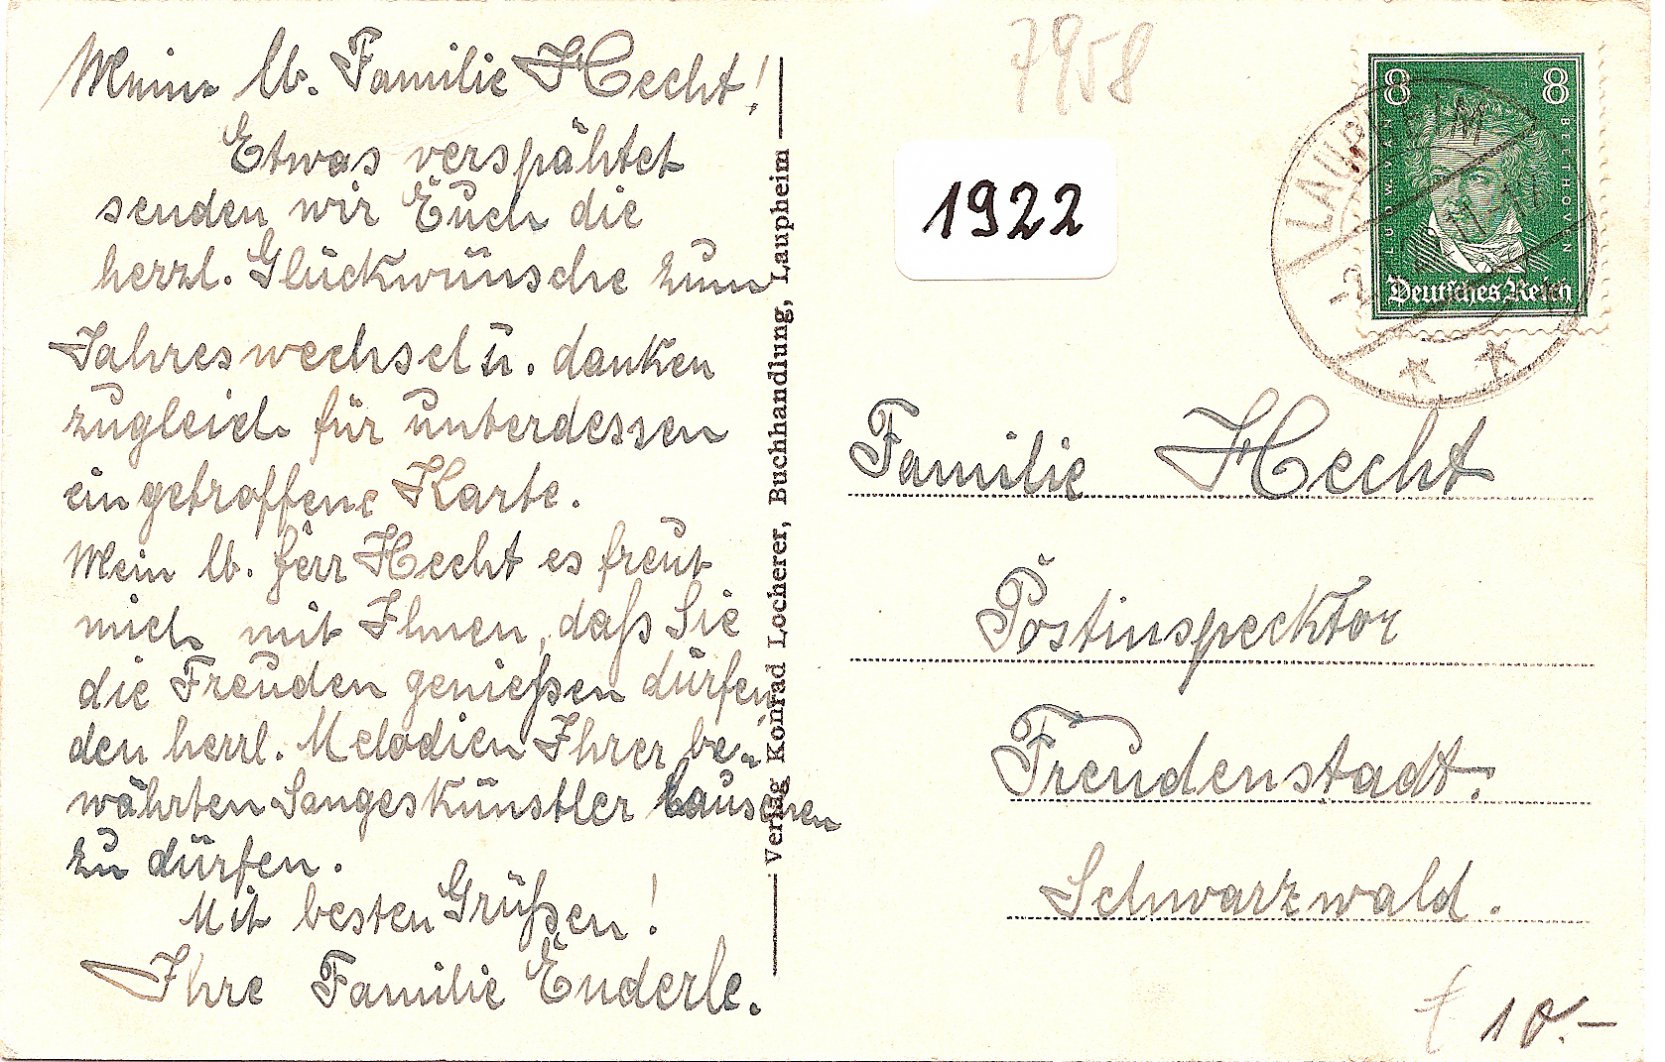 Meine lb. Familie Hecht!
Etwas verspähtet
senden wir Euch die
herzl. Glückwünsche zum
Jahreswechsel u. danken
zugleich für unterdessen
eingetroffene Karte.
Mein lb. Herr Hecht es freut
mich mit Ihnen, daß Sie
die Freuden genießen dürfen
den herrl. Melodien Ihrer be-
währten Sangeskünstler lauschen
zu dürfen.
Mit besten Grüßen!
Ihre Familie Enderle.
Verlag Konrad Locherer, Buchhandlung, Laupheim
7958
1922
8 8
LUDW. VAN BEETHOVEN
Deutsches Reich
LAUPHEIM
Familie Hecht
Postinspecktor
Freudenstadt.
Schwarzwald.
10.-